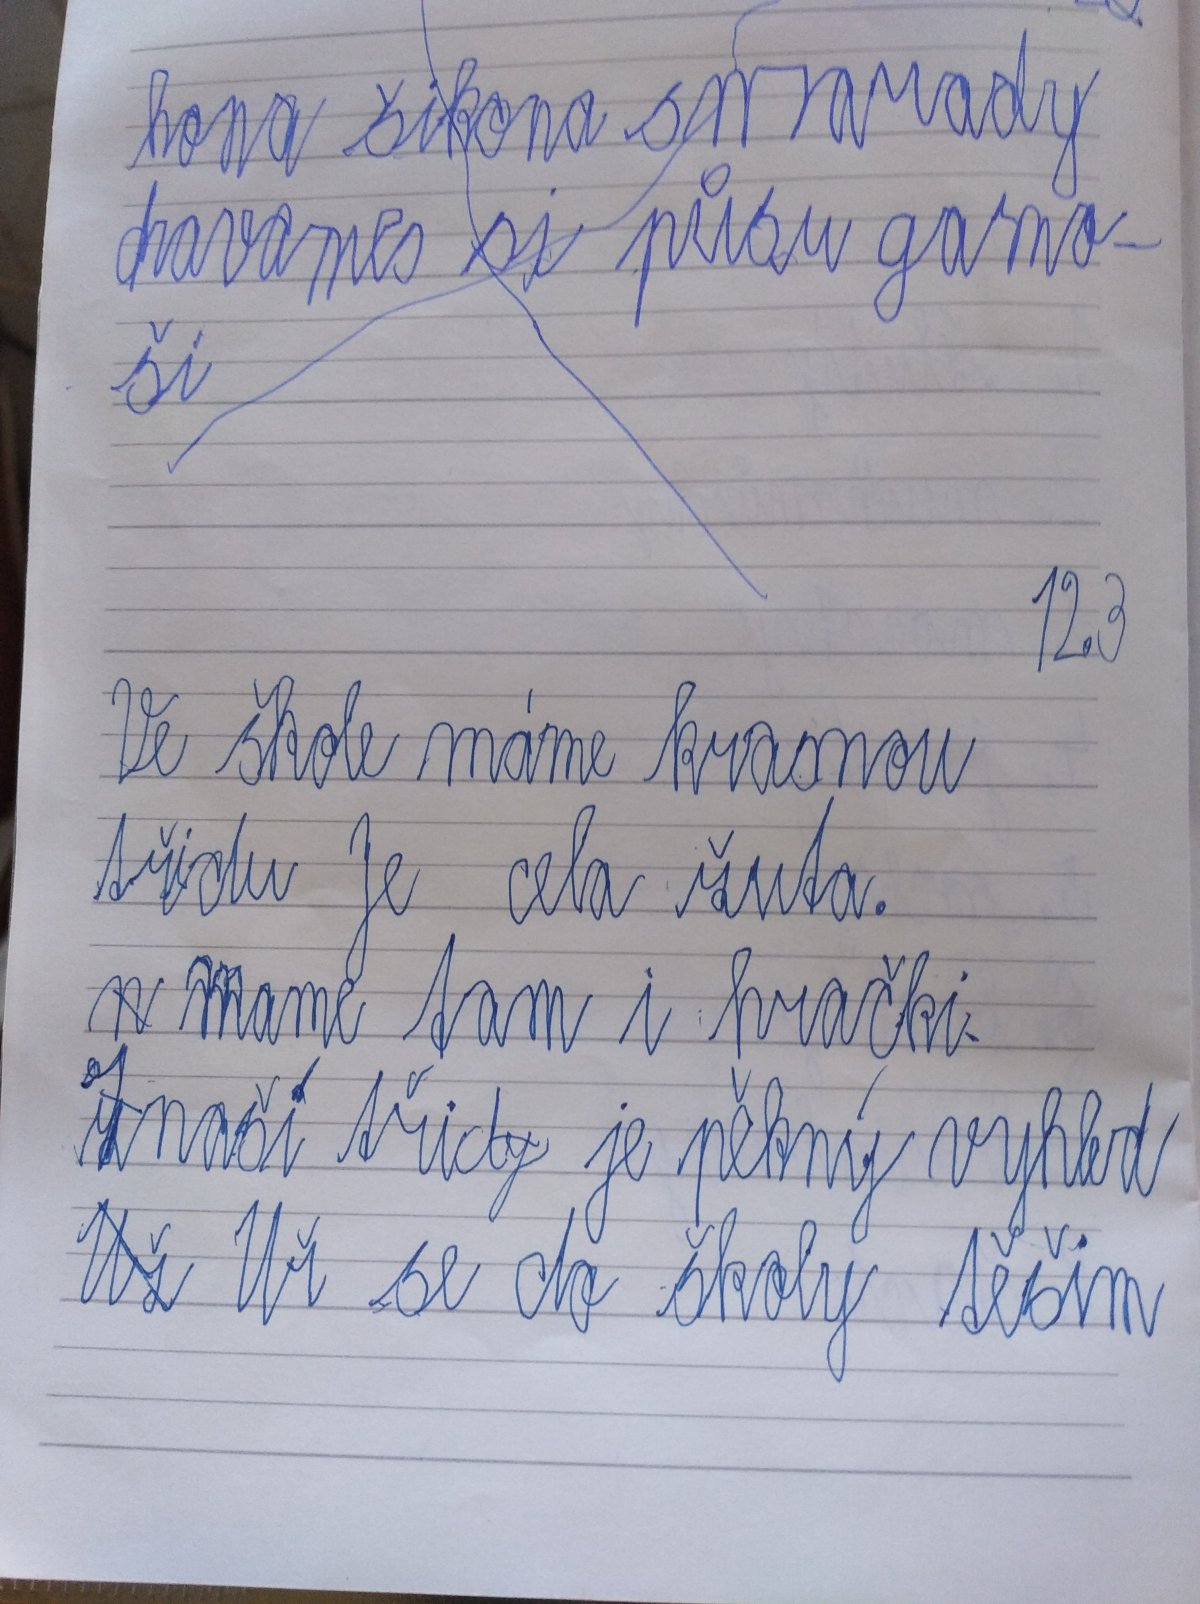 hona šikona
si půsu gamo-
ši
12.3
Ve škole máme krasnou
třidu Je cela žuta.
Mame tam i hrački.
Z naší třidy je pěkný vyhled
Už Už se do školy těšim